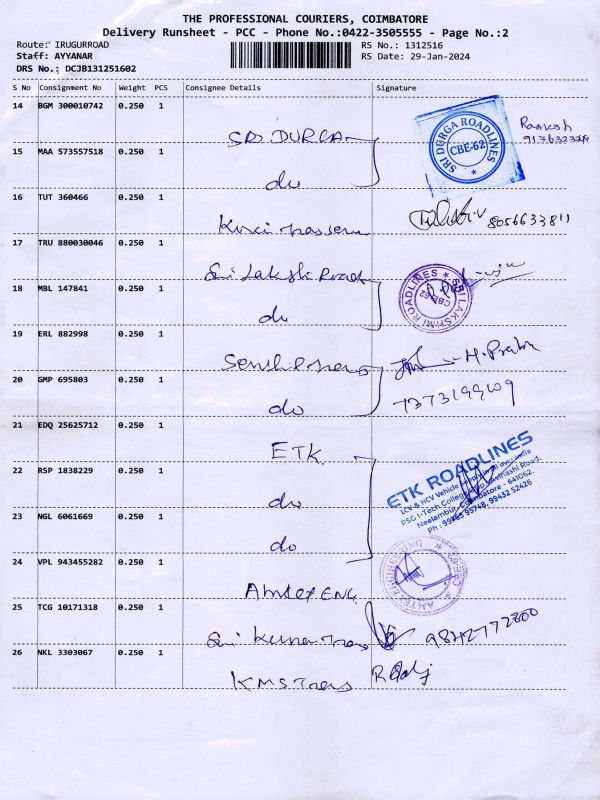 THE PROFESSIONAL COURIERS, COIMBATORE
Delivery Runsheet - PCC - Phone No.:0422-3505555 - Page No.:2
Route: IRUGURROAD
RS No.: 1312516
Staff: AYYANAR
RS Date: 29-Jan-2024
DRS No.: DCJB131251602
S No Consignment No Weight PCS Consignee Details Signature
14 BGM 300010742 0.250 1 SRI DURGA
SRI DURGA ROADLINES CBE-62
Ramesh
15 MAA 573557518 0.250 1 do
16 TUT 360466 0.250 1
8056633811
17 TRU 880030046 0.250 1 Sri Lakshi Road
SRI LAKSHMI ROADLINES CBE-62
18 MBL 147841 0.250 1 do
19 ERL 882998 0.250 1
H. Prabu
20 GMP 695803 0.250 1 do
21 EDQ 25625712 0.250 1 ETK
ETK ROADLINES
LCV & HCV Vehicle
PSG I-Tech College Avinashi Road,
Neelambur, Coimbatore - 641062
Ph : 99943 52426
22 RSP 1838229 0.250 1 do
23 NGL 6061669 0.250 1 do
24 VPL 943455282 0.250 1 Amtex ENG.
25 TCG 10171318 0.250 1 Sri Kumaran Trans
9842772800
26 NKL 3303067 0.250 1 KMS Trans